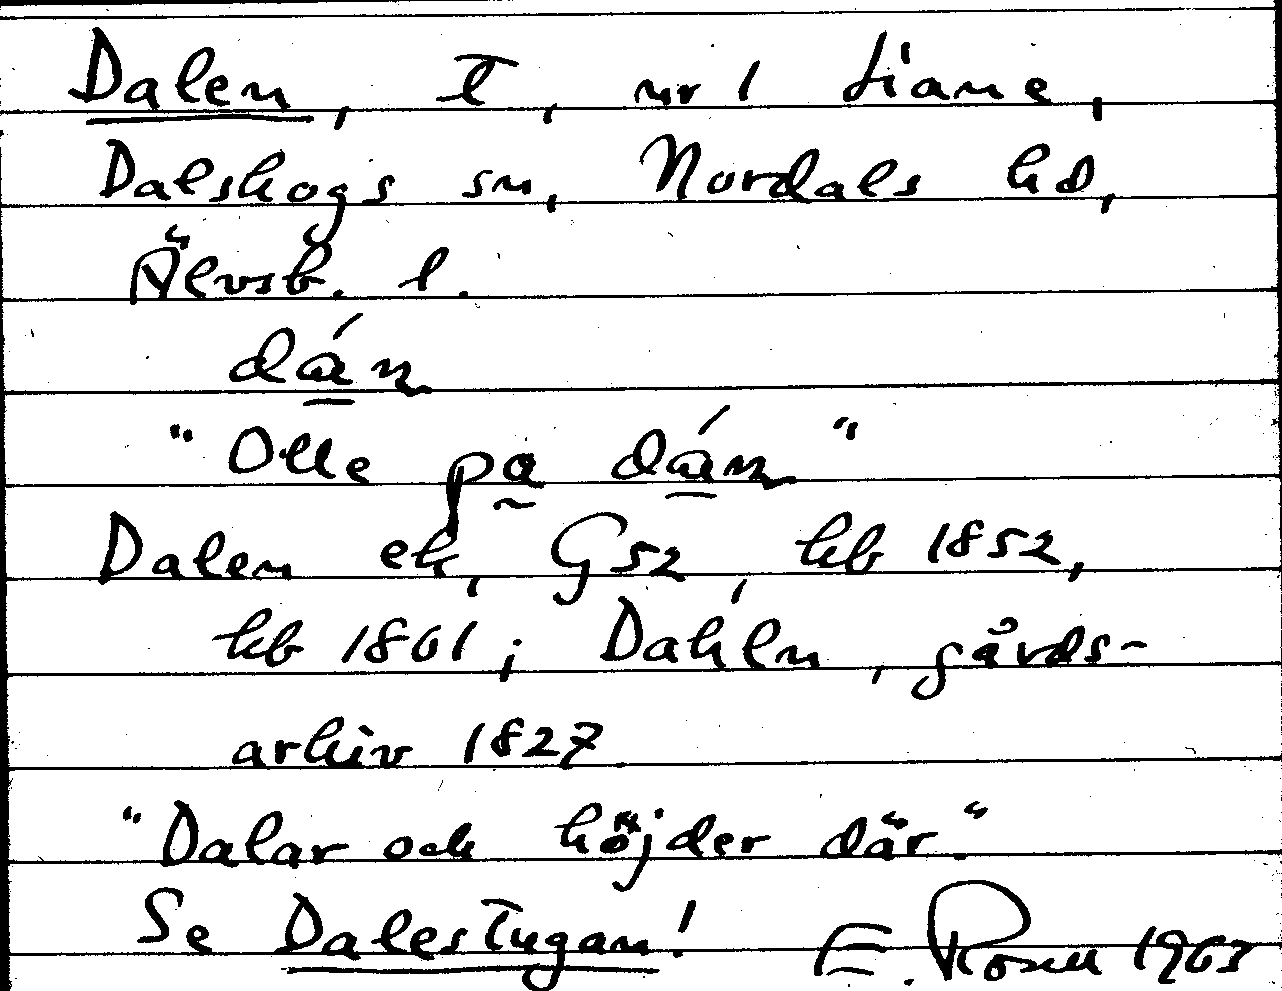 Dalen, T, nr 1 Liane,
Dalskogs sn, Nordals hd,
Älvsb. l.
dán
"Olle pa dán"
Dalen ek, G52, kb 1852,
kb 1861; Dahln, gårds-
arkiv 1827
"Dalar och höjder där."
Se Dalestugan! E. Rosell 1963